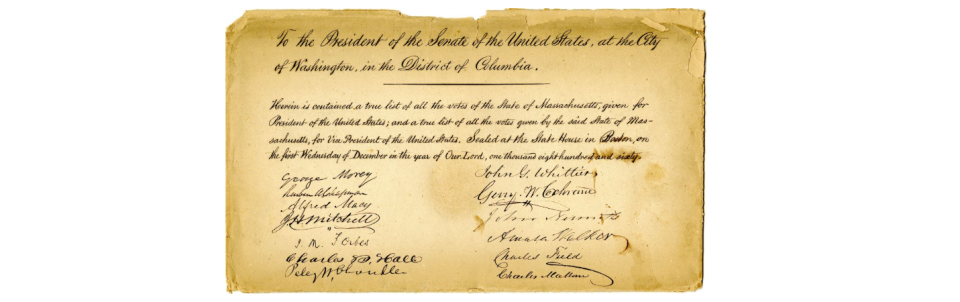 To the President of the Senate of the United States, at the City
of Washington, in the District of Columbia.
Herein is contained a true list of all the votes of the State of Massachusetts, given for
President of the United States; and a true list of all the votes given by the said State of Mas-
sachusetts, for Vice President of the United States. Sealed at the State House in Boston, on
the first Wednesday of December in the year of Our Lord, one thousand eight hundred and sixty.
George Morey
Alfred Macy
J. M. Forbes
Charles B. Hall
Peleg W. Chandler
John G. Whittier
Gerry W. Cochrane
John
Amasa Walker
Charles Field
Charles Mattoon